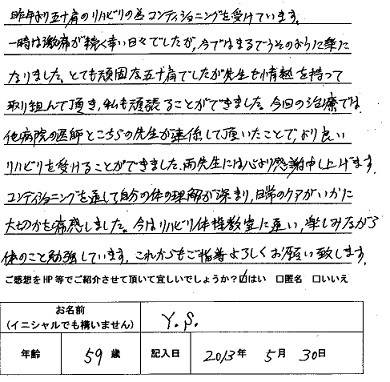 昨年より五十肩のリハビリの為コンディショニングを受けています。
一時は激痛が続く辛い日々でしたが、今ではまるでうそのように楽に
なりました。とても頑固な五十肩でしたが先生も情熱を持って
取り組んで頂き、私も頑張ることができました。今回の治療では、
他病院の医師とこちらの先生が連係して頂いたことで、より良い
リハビリを受けることができました。両先生には心より感謝申し上げます。
コンディショニングを通して自分の体の理解が深まり、日常のケアがいかに
大切かも痛感しました。今はリハビリ体操教室に通い、楽しみながら
体のこと勉強しています。これからもご指導よろしくお願い致します。
ご感想をHP等でご紹介させて頂いて宜しいでしょうか?☑はい □匿名 □いいえ
お名前
(イニシャルでも構いません) Y.S.
年齢 59歳 記入日 2013年 5月 30日